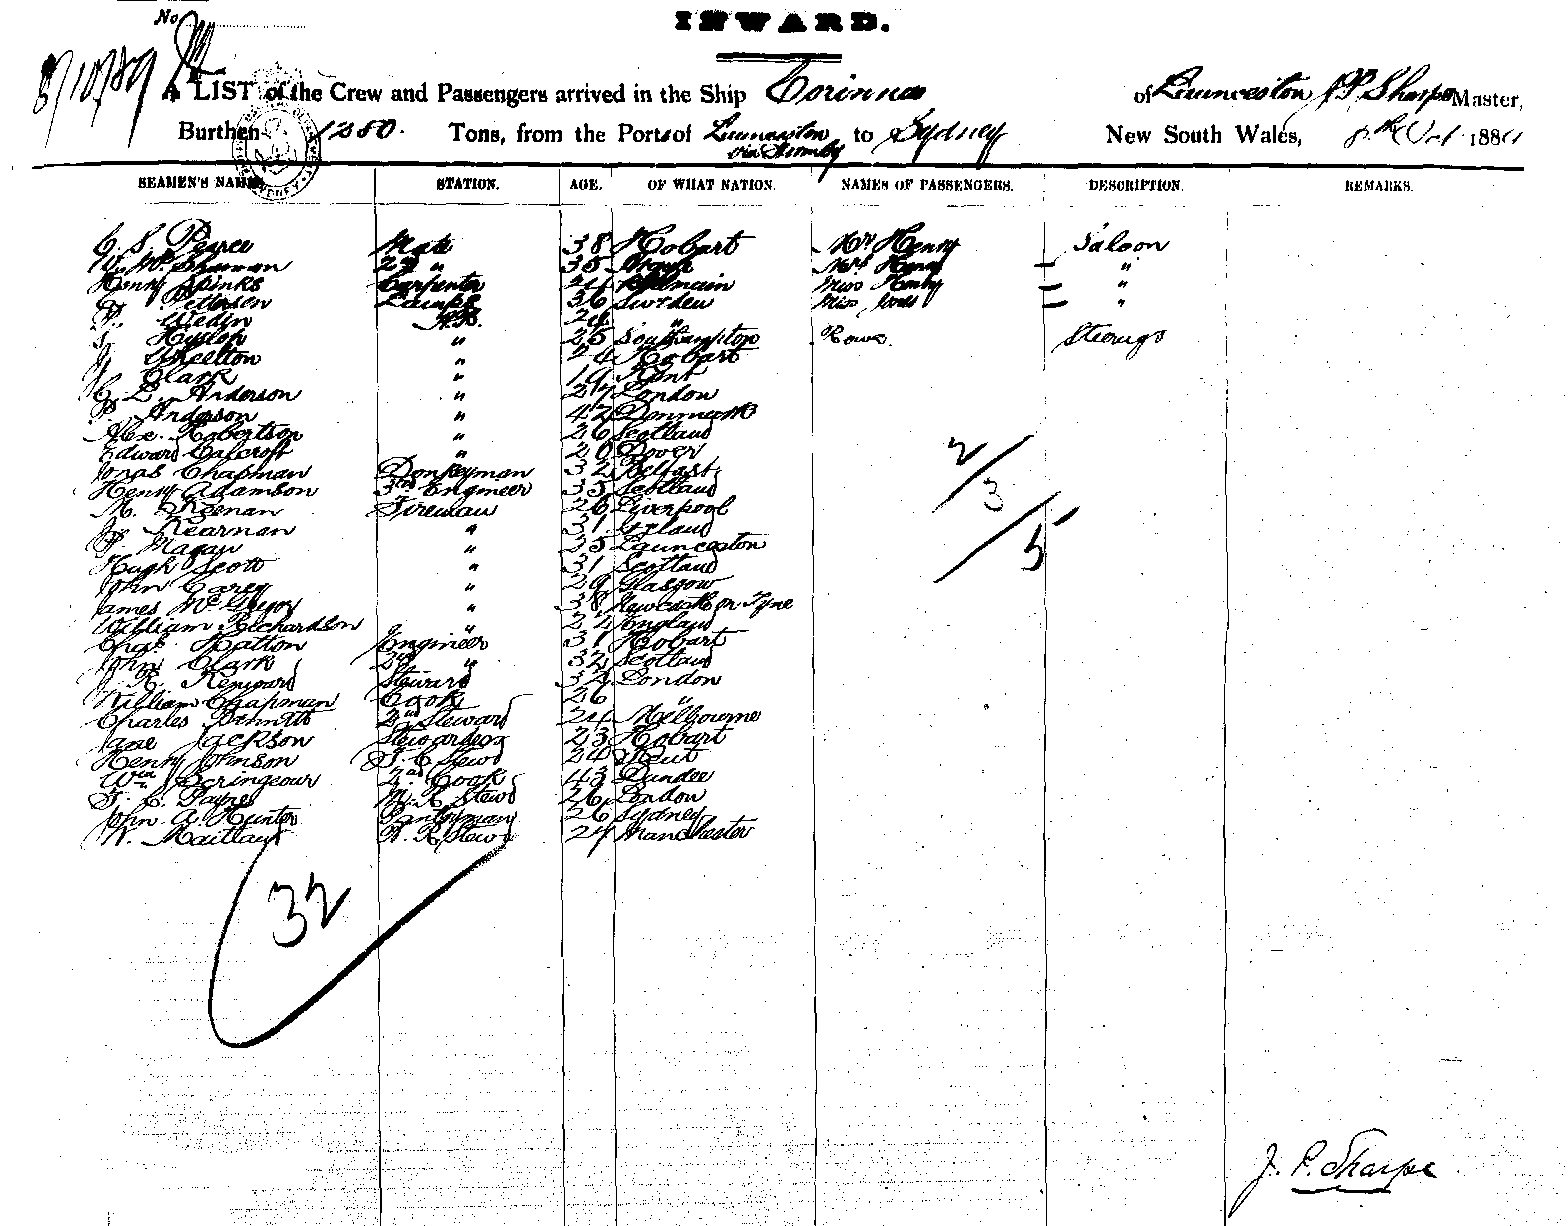 No
INWARD.
8/10/89
A LIST of the Crew and Passengers arrived in the Ship Corinna of Launceston J P Sharpe Master,
Burthen 1280. Tons, from the Port of Launceston via to Sydney New South Wales, 8th Oct 1889
SEAMEN'S NAMES. STATION. AGE. OF WHAT NATION. NAMES OF PASSENGERS. DESCRIPTION. REMARKS.
C. S. Pearce Mate 38 Hobart Mr Henry Saloon
W. Mc 2nd " 35 Mrs Henry "
Henry Spinks Carpenter 24 Balmain Miss Henry "
Peterson Lamps 36 Sweden Miss Jones "
A.B. 24 "
Hyslop " 25 Southampton Rowe. Steerage
Skelton " 24 Hobart
Clark " 19 Kent
C. L. Anderson " 27 London
P. Anderson " 42 Denmark
Alex. Robertson " 26 Scotland
Edward Calcroft " 20 Dover
Jonas Chapman Donkeyman 32 Belfast
Henry Adamson 3rd Engineer 35 Scotland
M. Keenan Fireman 26 Liverpool
J. Kearnan " 31 Ireland
Magan " 35 Launceston
Hugh Scott " 31 Scotland
John Carey " 29 Glasgow
James McGregor " 38 Newcastle on Tyne
William Richardson " 24 England
Chas. Hatton Engineer 31 Hobart
John Clark 2nd " 32 Scotland
J. R. Kenward Steward 32 London
William Chapman Cook 26 "
Charles Bennett 2nd Steward 24 Melbourne
Jane Jackson Stewardess 23 Hobart
Henry Johnson F. C. Stewd 24 Kent
Wm Scringeour 2nd Cook 43 Dundee
F. C. Payne M. R. Stewd 26 London
John A. Hunter Pantryman 26 Sydney
W. Maitland F. R. Stewd 24 Manchester
2/3/5
32
J. P. Sharpe